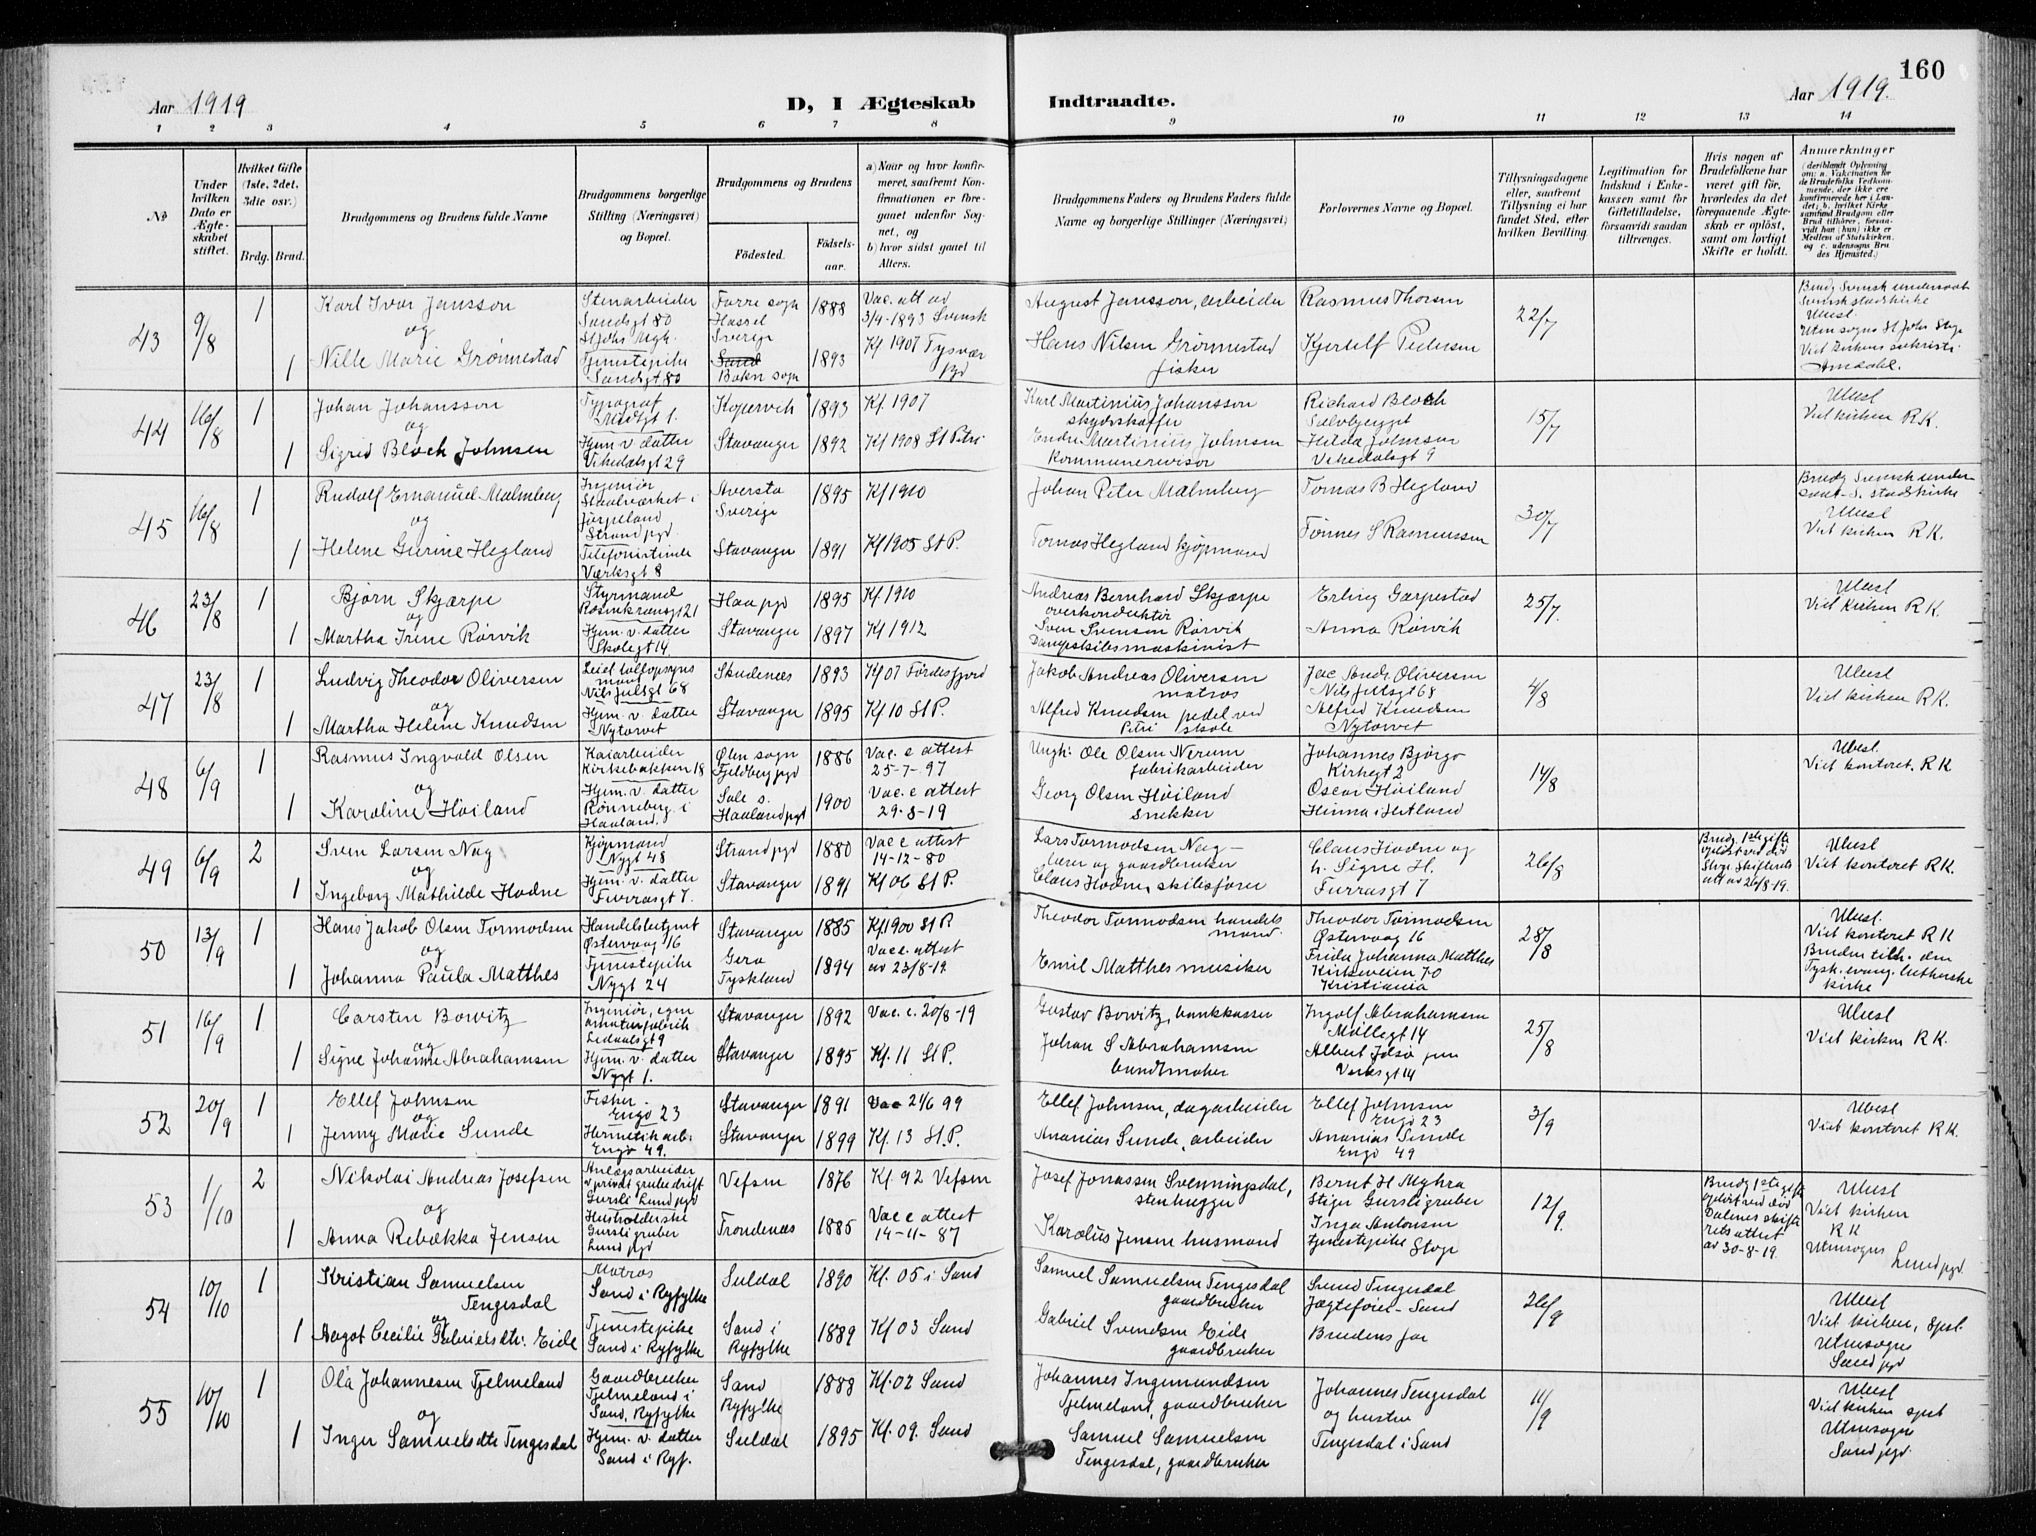 160
Aar 1919
D, I Ægteskab Indtraadte.
Aar 1919.
1 2 3 4 5 6 7 8 9 10 11 12 13 14
No
Under hvilken Dato er Ægteskabet stiftet.
Hvilket Gifte (1ste, 2det, 3die osv.)
Brdg. Brud.
Brudgommens og Brudens fulde Navne
Brudgommens borgerlige Stilling (Næringsvei) og Bopæl.
Brudgommens og Brudens
Födested.
Födselsaar.
a) Naar og hvor konfirmeret, saafremt Konfirmationen er foregaaet udenfor Sognet, og
b) hvor sidst gaaet til Alters.
Brudgommens Faders og Brudens Faders fulde Navne og borgerlige Stillinger (Næringsvei)
Forlovernes Navne og Bopæl.
Tillysningsdagene eller, saafremt Tillysning ei har fundet Sted, efter hvilken Bevilling.
Legitimation for Indskud i Enkekassen samt for Giftetilladelse, forsaavidt saadan tiltrænges.
Hvis nogen af Brudefolkene har været gift för, hvorledes da det foregaaende Ægteskab er oplöst, samt om lovligt Skifte er holdt.
Anmærkninger
(deriblandt Oplysning om: a. Vakcination for de Brudefolks Vedkommende, der ikke ere konfirmerede her i Landet; b. hvilket Kirkesamfund Brudgom eller Brud tilhörer, forsaavidt han (hun) ikke er Medlem af Statskirken, og c. udensogns Brudes Hjemsted.)
43 9/8 1 Karl Ivar Jansson Stenarbeider Sandsgt 80 St Johs Mgh. Torre sogn Hassel Sverige 1888 Vac. att av 3/4-1893 Svensk August Jansson, arbeider Rasmus Thorsen 22/7 Brudg Svensk undersaat Svensk stadskirke Ubesl.
og
1 Nille Marie Grønnestad Tjenestepike Sandsgt 80 Bokn sogn 1893 Kf 1907 Tysvær pgd Hans Nilsen Grønnestad fisker Kjetelf Pedersen Utensogns St Johs Stgr Viet kirkens sakristi
44 16/8 1 Johan Johansson Typograf Midtgt 1. Kopervik 1893 Kf. 1907 Karl Martinius Johansson skydsskaffer Richard Bloch Solvbjerggt 15/7 Ubesl Viet kirken R K.
og
1 Sigrid Bloch Johnsen Hjem. v. datter Vikedalsgt 29 Stavanger 1892 Kf 1908 St Petri Endre Martinius Johnsen kommunerevisor Hilda Johnsen Vikedalsgt 9
45 16/8 1 Rudolf Emanuel Malmberg Ingeniør Staalverket i Jørpeland Strand pgd. Aversta Sverige 1895 Kf 1910 Johan Peter Malmberg Tomas B Hegland 30/7 Brudg Svensk undersaat - S. stadskirke Ubesl Viet kirken R K.
og
1 Helene Gurine Hegland Telefonistinde Værksgt 8 Stavanger 1891 Kf 1905 St P. Tomas Hegland kjøpmand Tønnes S Rasmussen
46 23/8 1 Bjørn Skjærpe Styrmand Rosenkransgt 21 Haa pgd 1895 Kf 1910 Andreas Bernhard Skjærpe overkonduktør Erling Garpestad 25/7. Ubesl Viet kirken R K.
og
1 Martha Irene Rørvik Hjem. v. datter Skolegt 14. Stavanger 1897 Kf 1912 Sven Svensen Rørvik Dampskibsmaskinist Anna Rørvik
47 23/8 1 Ludvig Theodor Oliversen Leiet tollopsynsmand Nils Julsgt 68 Skudenes 1893 Kf 07 Førdesfjord Jakob Andreas Oliversen matros Jac Andr. Oliversen Nils Julsgt 68 4/8 Ubesl Viet kirken R K.
og
1 Martha Helene Knudsen Hjem. v. datter Nytorvet Stavanger 1895 Kf 10 St P. Alfred Knudsen pedel ved Petri skole Alfred Knudsen Nytorvet
48 6/9 1 Rasmus Ingvald Olsen Kaiarbeider Kirkebakken 18 Ølen sogn Fjeldberg pgd 1886 Vac. e attest 25-7-97 Ungk: Ole Olsen Nerum fabrikarbeider Johannes Bjørgo Kirkegt 2 14/8 Ubesl. Viet kontoret. R K
og
1 Karoline Høiland Hjem. v. datter Rønneberg. i Haaland. Sole s. Haaland pgd 1900 Vac. e attest 29-8-19 Georg Olsen Høiland snekker Oscar Høiland Hinna i Hetland
49 6/9 2 Sven Larsen Nag Kjøpmand Nygt 48 Strand pgd 1880 Vac e attest 14-12-80 Lars Tormodsen Nag - lærer og gaardbruker Claus Hodne og h. Signe H. Furrasgt 7 26/8 Brudg. 1ste gifte opløst ved død Stgr. Skifterets att av 26/8-19. Ubesl Viet kontoret R K.
og
1 Ingeborg Mathilde Hodne Hjem. v. datter Furrasgt 7. Stavanger 1891 Kf 06 St P. Claus Hodne, skibsfører
50 13/9 1 Hans Jakob Olsen Tormodsen Handelsbetjent Østervaag 16 Stavanger 1885 Kf 1900 St P Theodor Tormodsen handelsmand Theodor Tormodsen Østervaag 16 28/8 Ubesl. Viet kontoret R K
og
1 Johanna Paula Matthes Tjenestepike Nygt 24 Gera Tyskland 1894 Vac e. attest av 23/8-19 Emil Matthes musiker Frida Johanna Matthes Kirkeveien 70 Kristiania Bruden tilh. den Tysk. evang. lutherske kirke
51 16/9 1 Carsten Bowitz Ingeniør, egen amaturfabrik Ledaalsgt 9 Stavanger 1892 Vac. e. 20/8-19 Gustav Bowitz, bankkasser Ingolf Abrahamsen Møllegt 14 25/8 Ubesl Viet kirken R K.
og
1 Signe Johanne Abrahamsen Hjem. v. datter Nygt 1. Stavanger 1895 Kf. 11 St P. Johan S Abrahamsen bundtmaker Albert Jelsø jun Verksgt 14
52 20/9 1 Ellef Johnsen Fisker. Engø 23 Stavanger 1891 Vac 21/6 99 Ellef Johnsen, dagarbeider Ellef Johnsen Engø 23 3/9 Ubesl Viet kontoret R K.
og
1 Jenny Marie Sunde Hermetikarb. Engø 49. Stavanger 1899 Kf. 13 St. P. Ananias Sunde, arbeider Ananias Sunde Engø 49
53 1/10 2 Nikolai Andreas Josefsen Anlægsarbeider v privat grubedrift Gursli Lund pgd Vefsen 1876 Kf. 92 Vefsen Josef Jonassen Svenningsdal, stenhugger Bernt H Myhra Stiger Gursligruber 12/9. Brudg 1ste gifte opløst ved død Dalenes skifterets attest av 30-8-19. Ubesl Viet kirken R K
og
1 Anna Rebekka Jensen Husholderske Gursli gruber Lund pgd Trondenæs 1885 Vac e attest 14-11-87 Karolus Jensen husmand Inga Antonsen tjenestepike Stgr Utensogns Lund pgd.
54 10/10 1 Kristian Samuelsen Tengesdal Matros Sand i Ryfylke Suldal 1890 Kf. 05 i Sand Samuel Samuelsen Tengesdal gaardbruker Svend Tengesdal Jægtefører - Sand 26/9 Ubesl Viet kirken, spbl. Utensogns Sand pgd
og
1 Aagot Cecilie Gabrielsdtr. Eide Tjenestepike Sand i Ryfylke Sand i Ryfylke 1889 Kf 03 Sand Gabriel Svendsen Eide gaardbruker Brudens far
55 10/10 1 Ola Johannesen Tjelmeland Gaardbruker Tjelmeland i Sand, Ryfylke Sand Ryfylke 1888 Kf. 02 Sand Johannes Ingemundsen Tjelmeland, gaardbruker Johannes Tengesdal og hustru 11/9 Ubesl Viet kirken spbl Utensogns Sand pgd.
og
1 Inger Samuelsdtr Tengesdal Hjem. v. datter Sand i Ryf. Suldal 1895 Kf. 09. Sand Samuel Samuelsen Tengesdal, gaardbruker Tengesdal i Sand